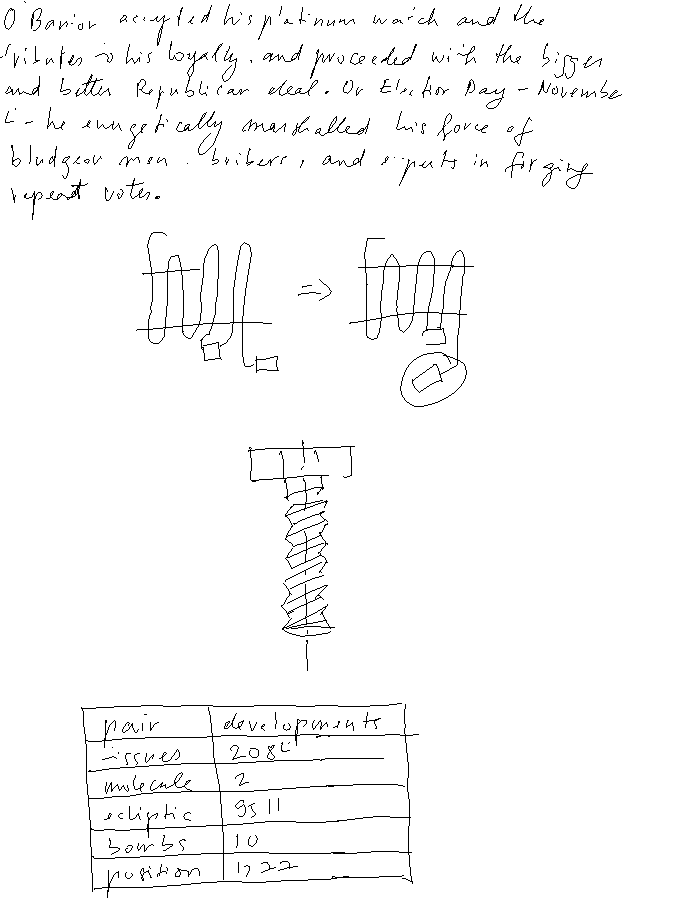 O'Banion accepted his platinum watch and the
tributes to his loyalty, and proceeded with the bigger
and better Republican deal. On Election Day - November
4 - he energetically marshalled his force of
bludgeon men, bribers, and experts in forging
repeat votes.
pair developments
issues 2084
molecule 2
ecliptic 9511
bombs 10
position 1722